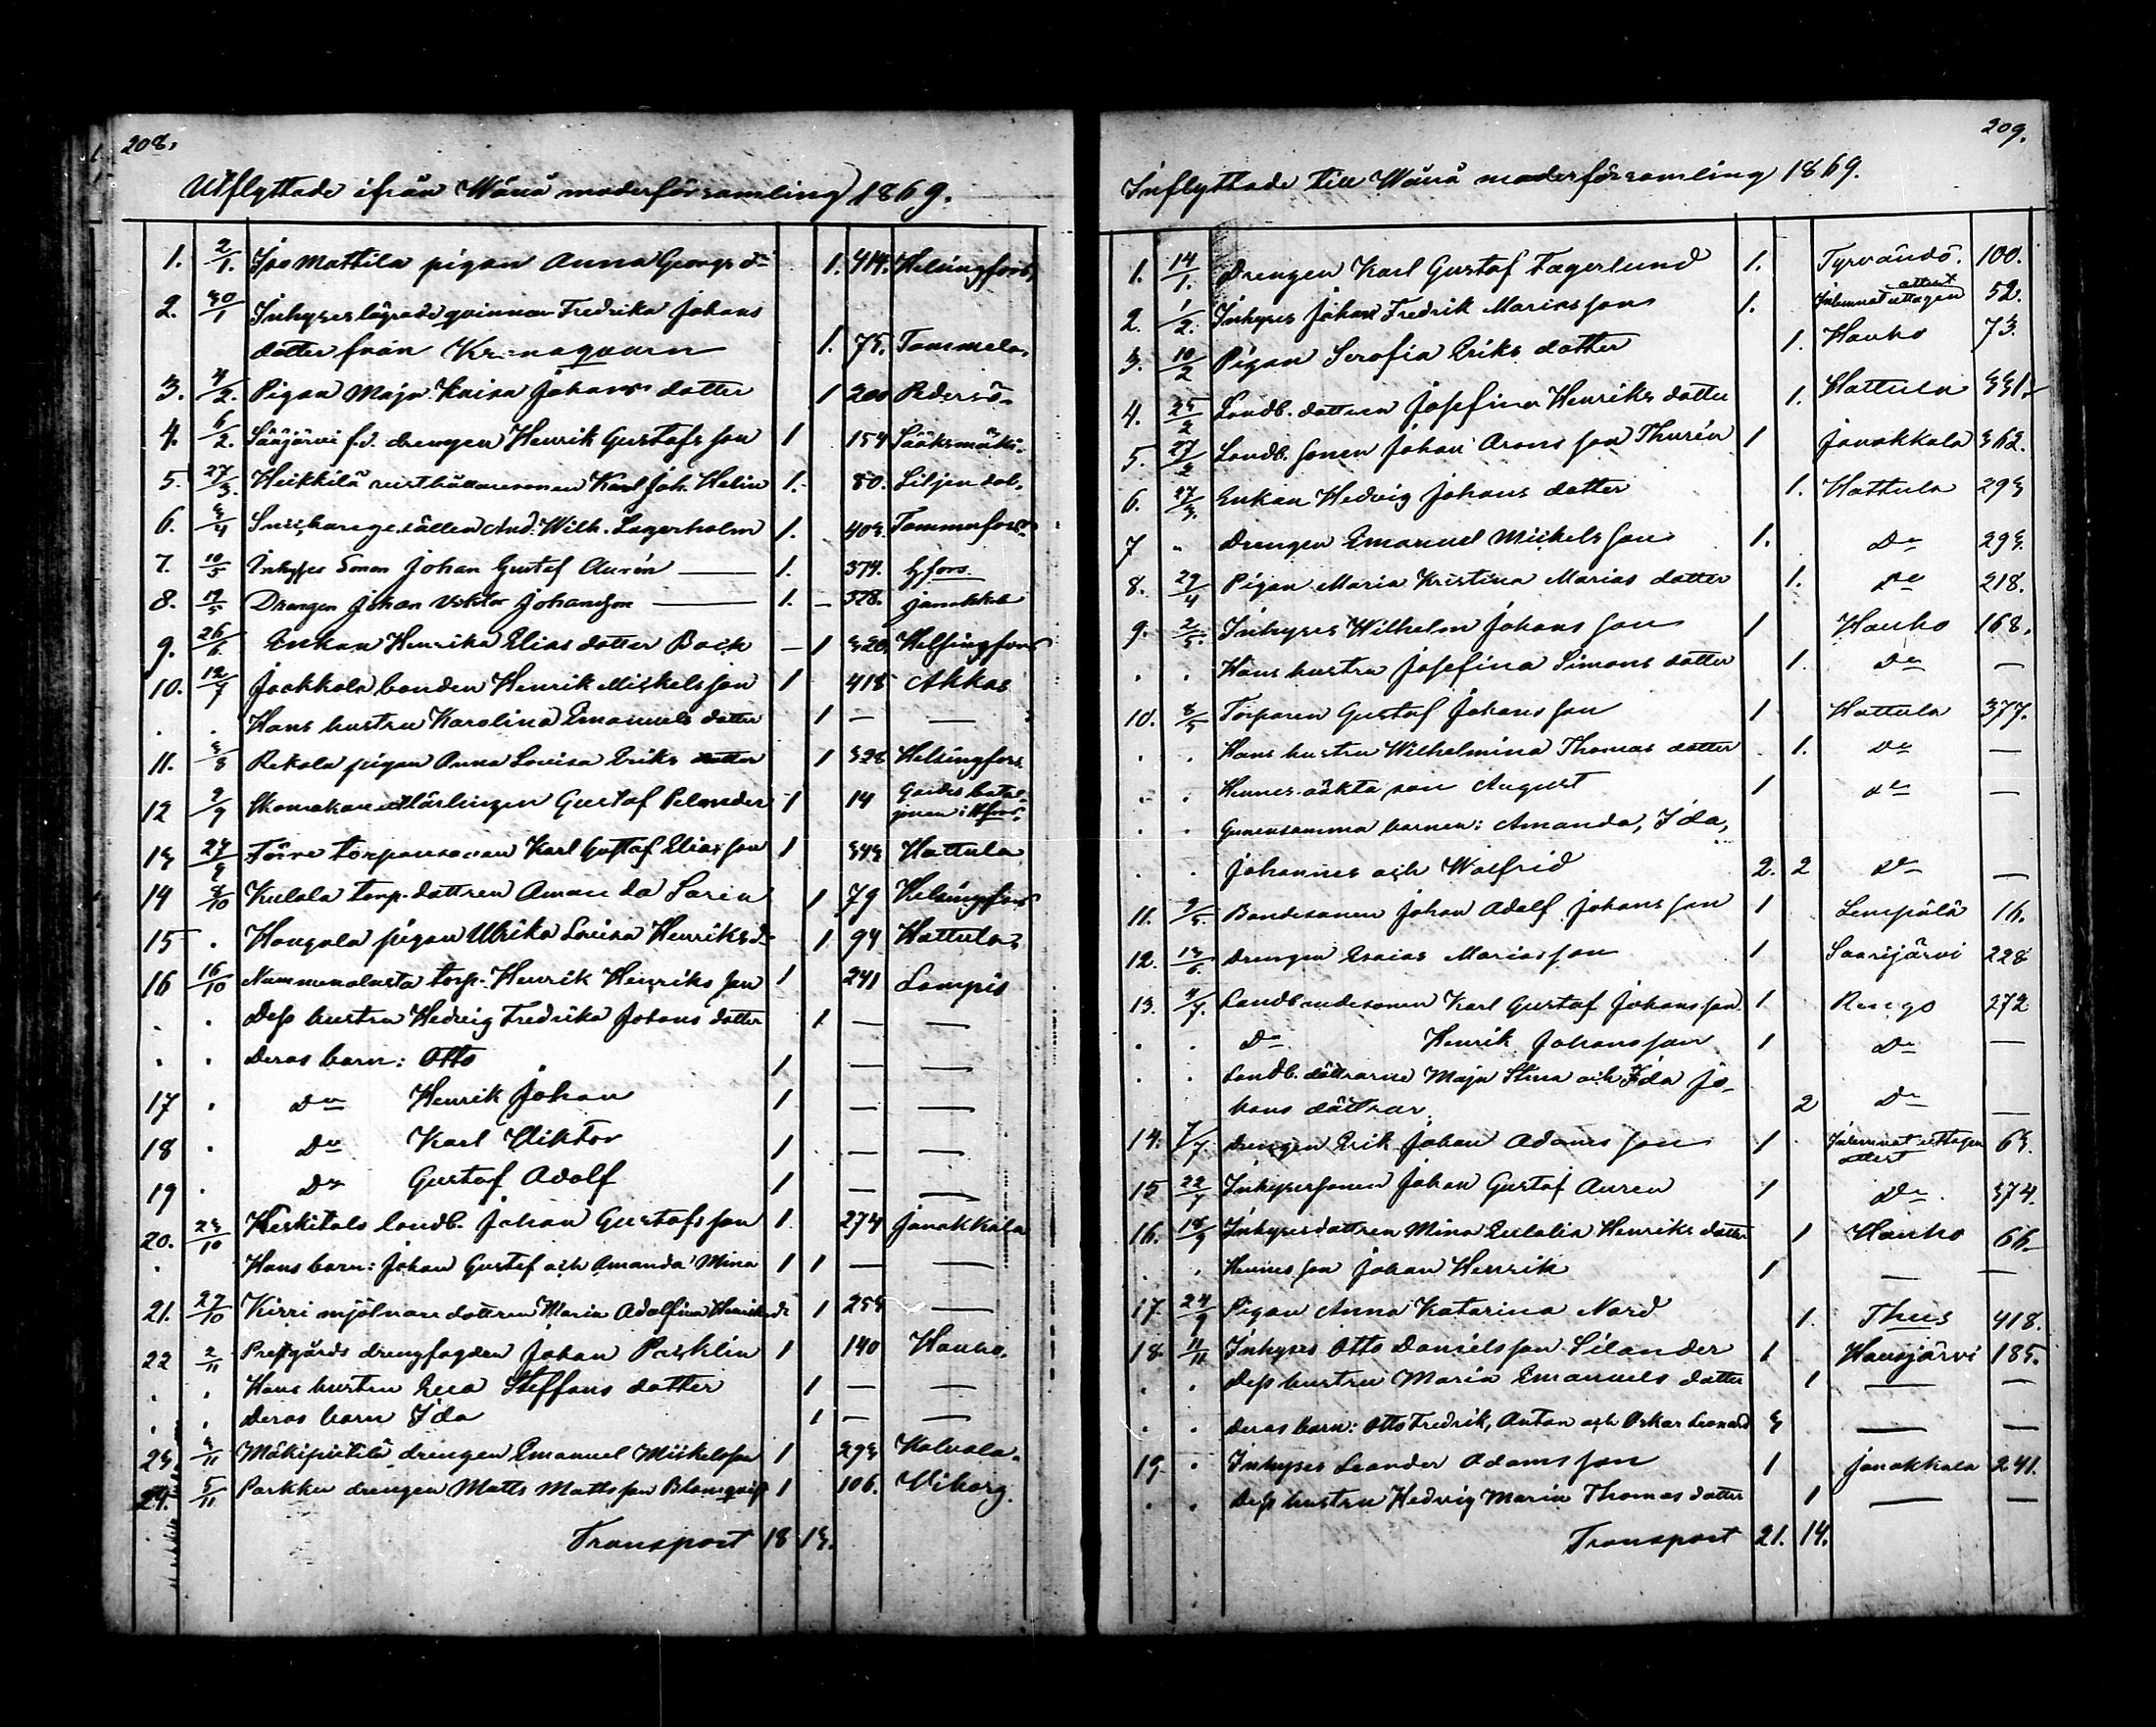 208.
Utflyttade ifrån Wånå moderförsamling 1869.
1. 2/1. Iso Mattila pigan Anna Georgs dr 1. 414. Helsingfors
2. 30/1 Inhyses lägrade qvinnan Fredrika Johans
dotter från Kronoqvarn 1. 75. Tammela.
3. 4/2. Pigan Maja Kaisa Johans dotter 1 200 Pedersö.
4. 6/2. Sääjärvi f.d. drengen Henrik Gustafsson 1 154 Sääksmäki.
5. 27/3. Heikkilä rusthållaresonen Karl Joh. Helin 1. 80. Liljendal.
6. 3/4 Snickaregesällen And. Wilh. Lagerholm 1. 403. Tammerfors
7. 10/5 Inhyses Sonen Johan Gustaf Aurén 1. 374. Hfors
8. 19/5 Drengen Johan Viktor Johansson 1. 328. Janakkala
9. 26/6 Enkan Henrika Elias dotter Back 1 320. Helsingfors
10. 12/7 Jackkola bonden Henrik Mickelsson 1 418 Akkas
. . Hans hustru Karolina Emanuels dotter 1 — —
11. 3/8 Rekola pigan Anna Lovisa Eriks dotter 1 328 Helsingfors
12 2/9 Skomakarelärlingen Gustaf Pelander 1 14 Gardes batal-
jonen i Hfors.
13 24/9 Törre torparesonen Karl Gustaf Eliasson 1 343 Hattula
14 8/10 Kulala torp. dottren Amanda Loren 1 79 Helsingfors
15 . Hangala pigan Ulrika Lovisa Henriksdr 1 94 Hattula
16 16/10 Nummenalusta torp. Henrik Henriksson 1 241 Lampis
. . Dess hustru Hedvig Fredrika Johans dotter 1 — —
. . Deras barn: Otto 1 — —
17 . Do Henrik Johan 1 — —
18 . Do Karl Viktor 1 — —
19 . Do Gustaf Adolf 1 — —
20. 23/10 Keskitalo landb. Johan Gustafsson 1 274 Janakkala
. Hans barn: Johan Gustaf och Amanda Mina 1 1 — —
21. 27/10 Kirri mjölnaredottren Maria Adolfina Henriksdr 1 254 —
22 2/11 Prestgårds drengfogden Johan Packlin 1 140 Hauho.
. . Hans hustru Eva Steffans dotter 1 — —
. . Deras barn Ida 1 — —
23. 3/11 drengen Emanuel Mickelsson 1 293 Kalvola.
24. 5/11 Parkku drengen Matts Mattsson Blomqvist 1 106. Viborg.
Transport 18 13.
209.
Inflyttade till Wånå moderförsamling 1869.
1. 14/1. Drengen Karl Gustaf Fagerlund 1. Tyrvändö. 100.
2. 1/2. Inhyses Johan Fredrik Mariasson 1. Inlemnat uttagen attest 52.
3. 10/2 Pigan Serafia Eriks dotter 1. Hauho 73.
4. 25/2 Landb. dottren Josefina Henriks dotter 1. Hattula 331.
5. 27/2 Landb. sonen Johan Aronsson Thurén 1 Janakkala 362.
6. 27/3. Enkan Hedvig Johans dotter 1. Hattula 293
7 " Drengen Emanuel Mickelsson 1. Do 293.
8. 29/4 Pigan Maria Kristina Marias dotter 1. Do 218.
9. 2/5. Inhyses Wilhelm Johansson 1 Hauho 168.
. . Hans hustru Josefina Simons dotter 1. Do —
10. 8/5 Torparen Gustaf Johansson 1 Hattula 377.
. . Hans hustru Wilhelmina Thomas dotter 1. Do —
. . Hennes oäkta son August 1 Do —
. . Gemensamma barnen: Amanda, Ida,
. . Johannes och Walfrid 2. 2 Do —
11. 9/5. Bondesonen Johan Adolf Johansson 1 Lempälä 16.
12. 13/6 Drengen Esaias Mariasson 1 Saarijärvi 228
13. 4/7. Landbondesonen Karl Gustaf Johansson 1. Rengo 272
. . Do Henrik Johansson 1 Do —
. . Landb. döttrarne Maja Stina och Ida Jo-
hans döttrar. 2 Do —
14. 7/7 Drengen Erik Johan Adamsson 1 Inlemnat uttagen attest 63.
15 22/7 Inhysessonen Johan Gustaf Auren 1 Do 374.
16. 18/9 Inhysesdottren Mina Eulalia Henriks dotter 1 Hauho 66.
. . Hennes son Johan Henrik 1 — —
17. 24/9 Pigan Anna Katarina Nord 1. Thus 418.
18. 11/11 Inhyses Otto Danielsson Silander 1 Hausjärvi 185.
. . Dess hustru Maria Emanuels dotter 1 — —
. . Deras barn: Otto Fredrik, Anton och Oskar Leonard 3 — —
19. . Inhyses Leander Adamsson 1 Janakkala 241.
. . Dess hustru Hedvig Maria Thomas dotter 1 — —
Transport 21. 14.